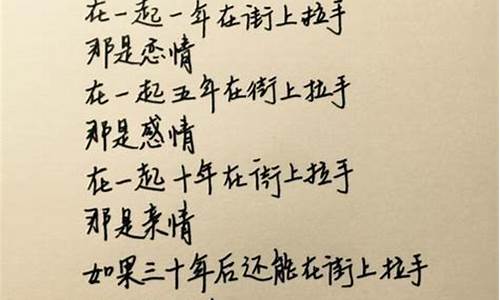 在一起一年在街上拉手
那是恋情
在一起五年在街上拉手
那是感情
在一起十年在街上拉手
那是亲情
如果三十年后还能在街上拉手